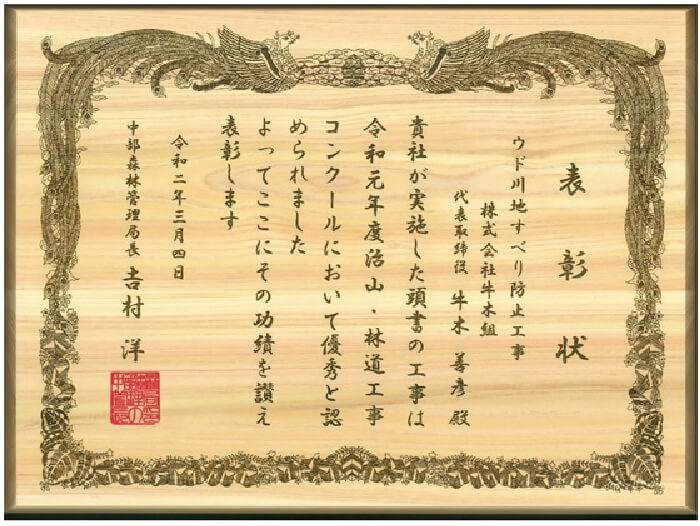 表彰状
ウド川地すべり防止工事
株式会社牛木組
代表取締役 牛木 善彦 殿
貴社が実施した頭書の工事は
令和元年度治山、林道工事
コンクールにおいて優秀と認
められました
よってここにその功績を讃え
表彰します
令和二年三月四日
中部森林管理局長 吉村 洋